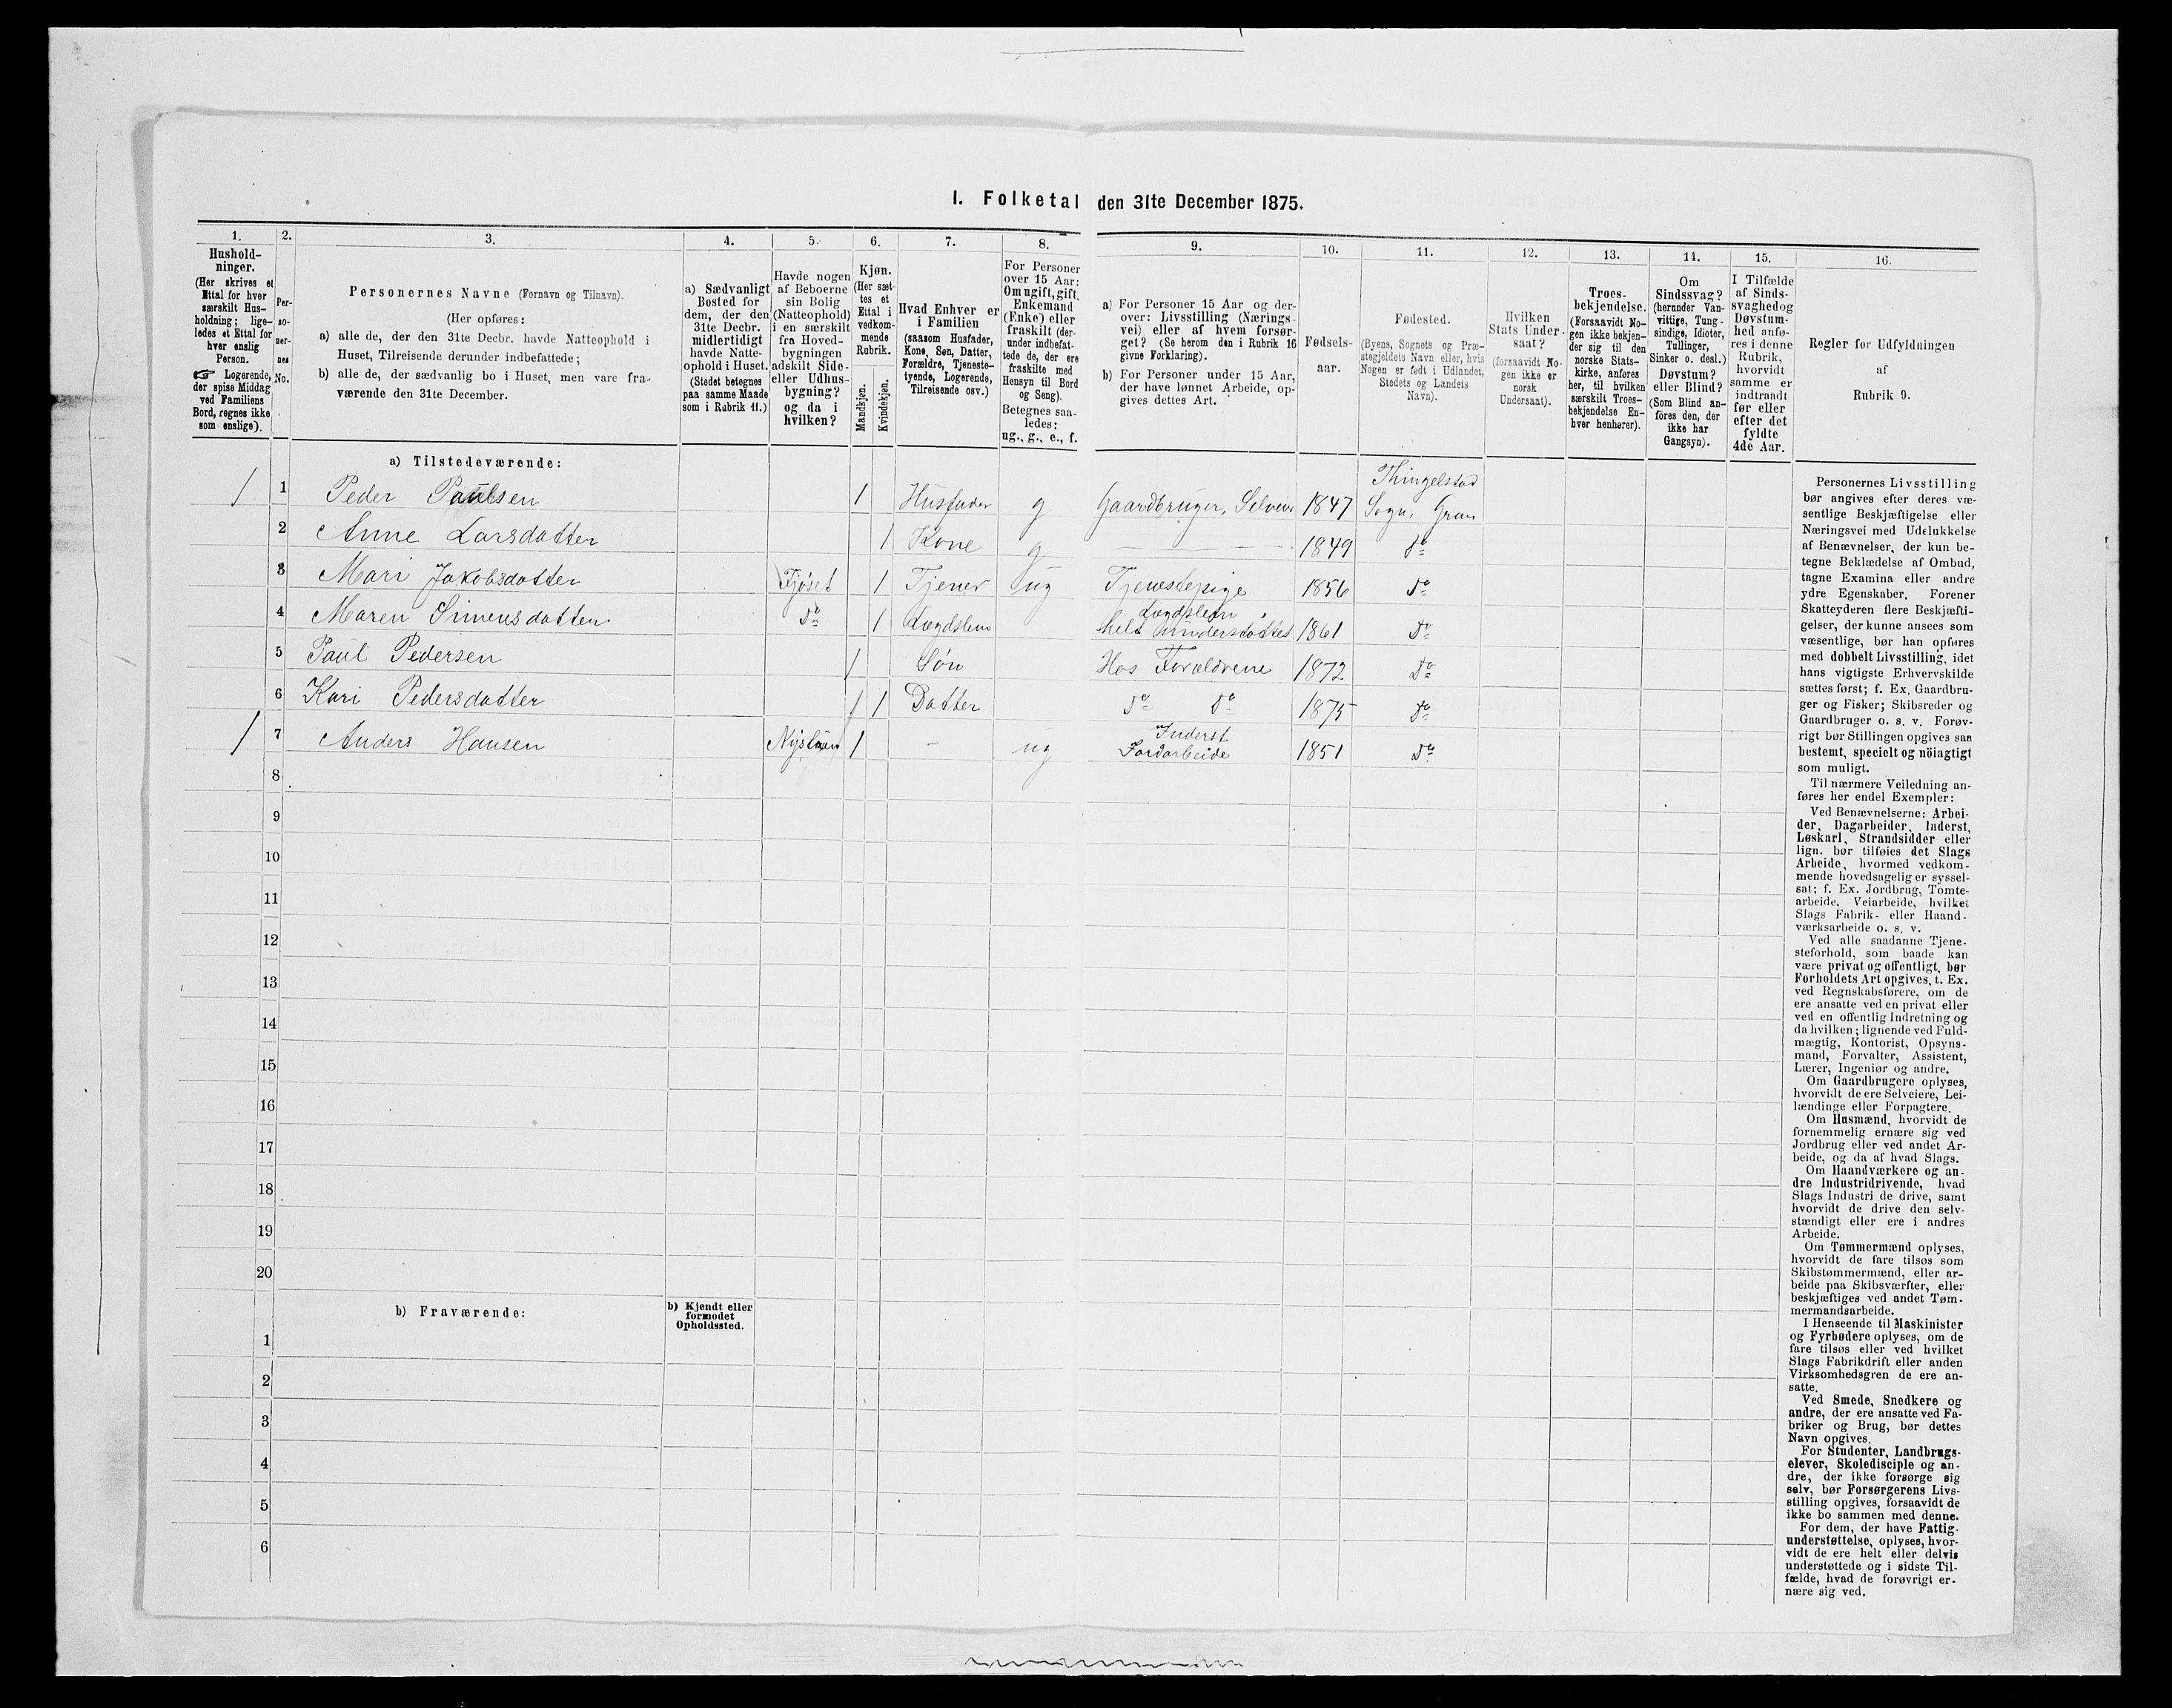 I. Folketal den 31te December 1875.
1.
Hushold-
ninger.
(Her skrives et
Ettal for hver
særskilt Hus-
holdning; lige-
ledes et Ettal for
hver enslig
Person.
☞ Logerende,
der spise Middag
ved Familiens
Bord, regnes ikke
som enslige).
2.
Per-
so-
ner-
nes
No.
3.
Personernes Navne (Fornavn og Tilnavn).
(Her opføres:
a) alle de, der den 31te Decbr. havde Natteophold i
Huset, Tilreisende derunder indbefattede;
b) alle de, der sædvanlig bo i Huset, men vare fra-
værende den 31te December.
4.
a) Sædvanligt
Bosted for
dem, der den
31te Decbr.
midlertidigt
havde Natte-
ophold i Huset.
(Stedet betegnes
paa samme Maade
som i Rubrik 11.)
5.
Havde nogen
af Beboerne
sin Bolig
(Natteophold)
i en særskilt
fra Hoved-
bygningen
adskilt Side-
eller Udhus-
bygning?
og da i
hvilken?
6.
Kjøn.
(Her sæt-
tes et
Ettal i
vedkom-
mende
Rubrik.
Mandkjøn.
Kvindekjøn.
7.
Hvad Enhver er
i Familien
(saasom Husfader,
Kone, Søn, Datter,
Forældre, Tjeneste-
tyende, Logerende,
Tilreisende osv.)
8.
For Personer
over 15 Aar:
Om ugift, gift,
Enkemand
(Enke) eller
fraskilt (der-
under indbefat-
tede de, der ere
fraskilte med
Hensyn til Bord
og Seng).
Betegnes saa-
ledes:
ug., g., e., f.
9.
a) For Personer 15 Aar og der-
over: Livsstilling (Nærings-
vei) eller af hvem forsør-
get? (Se herom den i Rubrik 16
givne Forklaring).
b) For Personer under 15 Aar,
der have lønnet Arbeide, op-
gives dettes Art.
10.
Fødsels-
aar.
11.
Fødested.
(Byens, Sognets og Præ-
stegjeldets Navn eller, hvis
Nogen er født i Udlandet,
Stedets og Landets
Navn).
12.
Hvilken
Stats Under-
saat?
(forsaavidt No-
gen ikke er
norsk
Undersaat).
13.
Troes-
bekjendelse.
(Forsaavidt No-
gen ikke bekjen-
der sig til den
norske Stats-
kirke, anføres
her, til hvilken
særskilt Troes-
bekjendelse En-
hver henhører).
14.
Om
Sindssvag?
(herunder Van-
vittige, Tung-
sindige, Idioter,
Tullinger,
Sinker o. desl.)
Døvstum?
eller Blind?
(Som Blind an-
føres den, der
ikke har
Gangsyn).
15.
I Tilfælde
af Sinds-
svaghed og
Døvstum-
hed anfø-
res i denne
Rubrik,
hvorvidt
samme er
indtraadt
før eller
efter det
fyldte
4de Aar.
16.
Regler for Udfyldningen
af
Rubrik 9.
a) Tilstedeværende:
1 1 Peder Paulsen 1 Husfader g Gaardbruger, Selveier 1847 Thingelstad
Sogn, Gran
2 Anne Larsdatter 1 Kone g — — — 1849 do
3 Mari Jakobsdatter Fjøset 1 Tjener ug Tjenestepige 1856 do
4 Maren Simensdatter do 1 Lægdslem Lægdslem,
helt understøttet 1861 do
5 Paul Pedersen 1 Søn Hos Forældrene 1872 do
6 Kari Pedersdatter 1 1 Datter do do 1875 do
1 7 Anders Hansen 1 - ug Inderst
Jordarbeide 1851 do
8
9
10
11
12
13
14
15
16
17
18
19
20
b) Fraværende:
b) Kjendt eller
formodet
Opholdssted.
1
2
3
4
5
6
Personernes Livsstilling
bør angives efter deres væ-
sentlige Beskjæftigelse eller
Næringsvei med Udelukkelse
af Benævnelser, der kun be-
tegne Beklædelse af Ombud,
tagne Examina eller andre
ydre Egenskaber. Forener
Skatteyderen flere Beskjæfti-
gelser, der kunne ansees som
væsentlige, bør han opføres
med dobbelt Livsstilling, idet
hans vigtigste Erhvervskilde
sættes først; f. Ex. Gaardbru-
ger og Fisker; Skibsreder og
Gaardbruger o. s. v. Forøv-
rigt bør Stillingen opgives saa
bestemt, specielt og nöiagtigt
som muligt.
Til nærmere Veiledning an-
føres her endel Exempler:
Ved Benævnelserne: Arbei-
der, Dagarbeider, Inderst,
Løskarl, Strandsidder eller
lign. bør tilføies det Slags
Arbeide, hvormed vedkom-
mende hovedsagelig er syssel-
sat; f. Ex. Jordbrug, Tomte-
arbeide, Veiarbeide, hvilket
Slags Fabrik- eller Haand-
værksarbeide o. s. v.
Ved alle saadanne Tjene-
steforhold, som baade kan
være privat og offentligt, bør
Forholdets Art opgives, t. Ex.
ved Regnskabsførere, om de
ere ansatte ved en privat eller
ved en offentlig Indretning og
da hvilken; lignende ved Fuld-
mægtig, Kontorist, Opsyns-
mand, Forvalter, Assistent,
Lærer, Ingeniør og andre.
Om Gaardbrugere oplyses,
hvorvidt de ere Selveiere, Lei-
lændinge eller Forpagtere.
Om Husmænd, hvorvidt de
fornemmelig ernære sig ved
Jordbrug eller ved andet Ar-
beide, og da af hvad Slags.
Om Haandværkere og an-
dre Industridrivende, hvad
Slags Industri de drive, samt
hvorvidt de drive den selv-
stændigt eller ere i andres
Arbeide.
Om Tømmermænd oplyses,
hvorvidt de fare tilsøs som
Skibstømmermænd, eller ar-
beide paa Skibsværfter, eller
beskjæftiges ved andet Tøm-
mermandsarbeide.
I Henseende til Maskinister
og Fyrbødere oplyses, om de
fare tilsøs eller ved hvilket
Slags Fabrikdrift eller anden
Virksomhedsgren de ere an-
satte.
Ved Smede, Snedkere og
andre, der ere ansatte ved Fa-
briker og Brug, bør dettes
Navn opgives.
For Studenter, Landbrugs-
elever, Skoledisciple og an-
dre, der ikke forsørge sig
selv, bør Forsørgerens Livs-
stilling opgives, forsaavidt de
ikke bo sammen med denne.
For dem, der have Fattig-
understøttelse, oplyses, hvor-
vidt de ere helt eller delvis
understøttede og i sidste Til-
fælde, hvad de forøvrigt er-
nære sig ved.